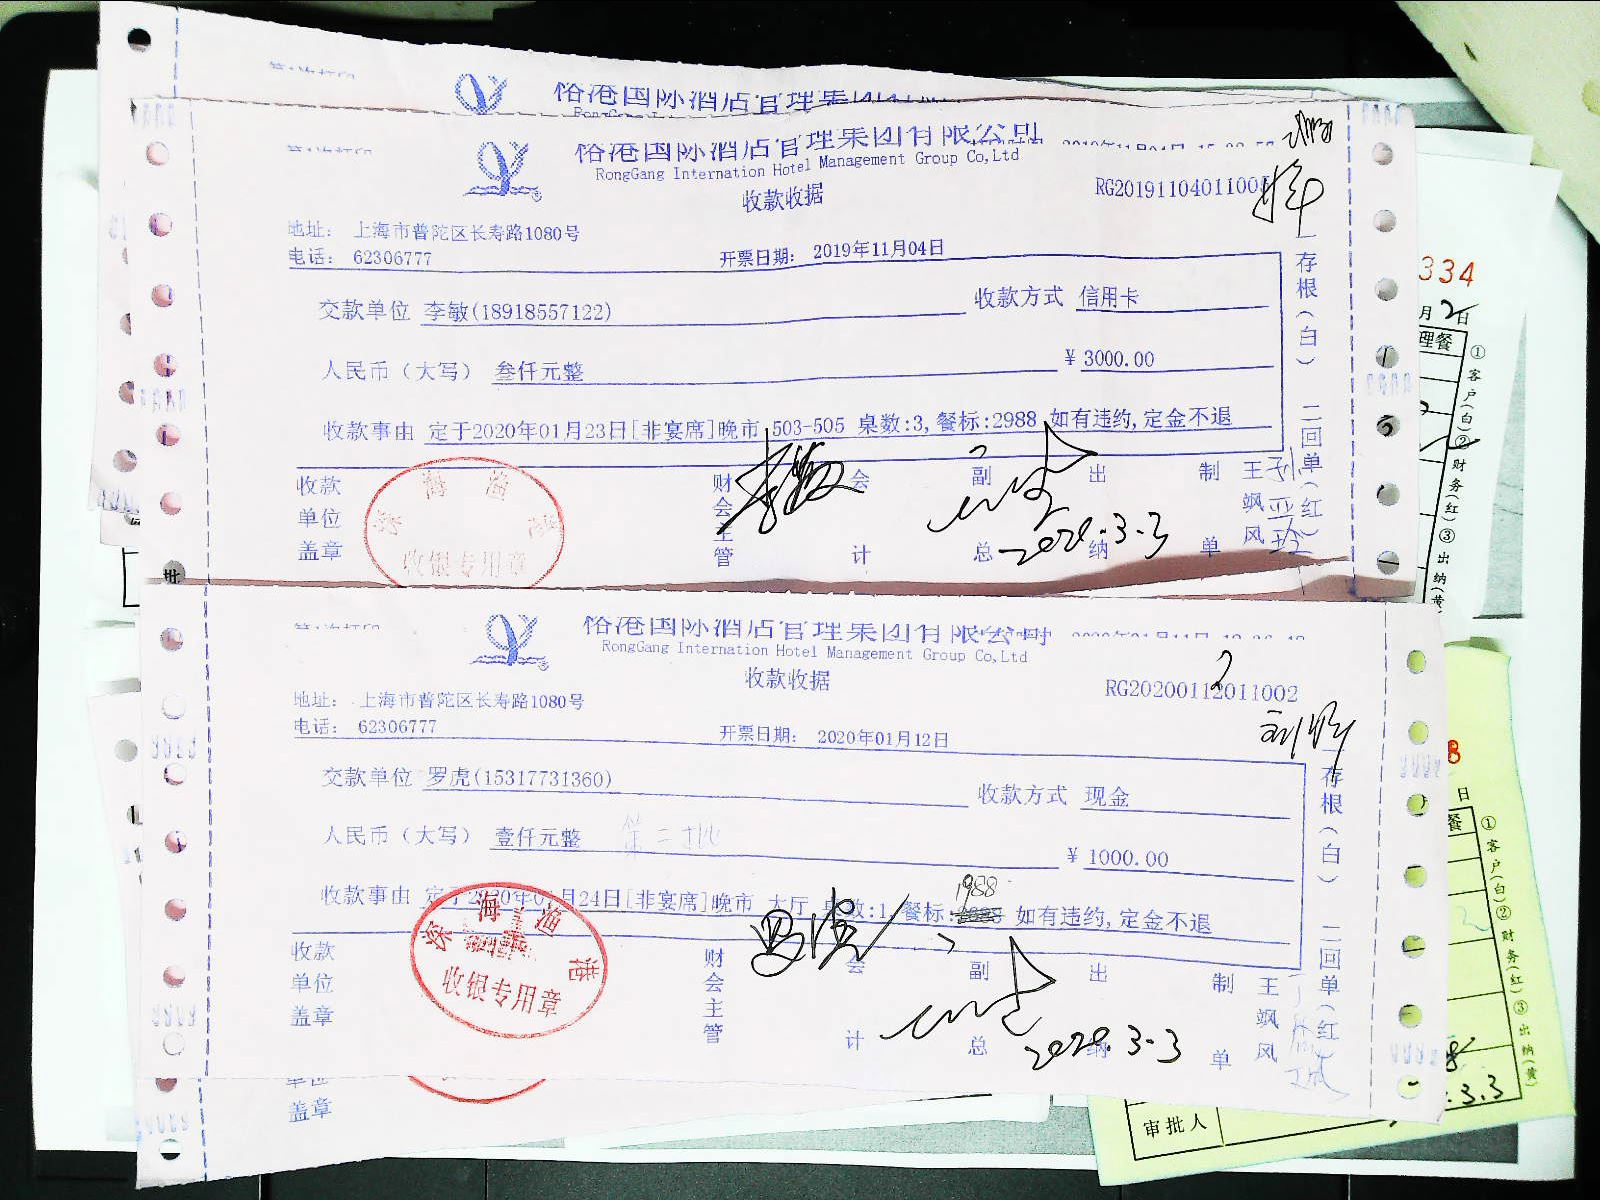 RongGang Internation Hotel Management Group Co,Ltd
收款收据
RG20191104011005
地址: 上海市普陀区长寿路1080号
电话: 62306777
开票日期: 2019年11月04日
交款单位 李敏(18918557122)
收款方式 信用卡
人民币(大写) 叁仟元整
¥ 3000.00
收款事由 定于2020年01月23日[非宴席]晚市 503-505 桌数:3,餐标:2988 如有违约,定金不退
收款单位盖章
财会主管
会计
副总
出纳
制单
王飒风
2020.3.3
收银专用章
存根(白) 二回单(红)
裕港国际酒店管理集团有限公司
RongGang Internation Hotel Management Group Co,Ltd
收款收据
RG20200112011002
2
地址: 上海市普陀区长寿路1080号
电话: 62306777
开票日期: 2020年01月12日
交款单位 罗虎(15317731360)
收款方式 现金
人民币(大写) 壹仟元整 第二批
¥ 1000.00
收款事由 定于2020年01月24日[非宴席]晚市 大厅 桌数:1,餐标: 1988 如有违约,定金不退
收款单位盖章
财会主管
会计
副总
出纳
制单
王飒风
2020.3.3
深海渔港
收银专用章
存根(白) 二回单(红)
单位
盖章
334
月2日
理餐
①客户(白)②财务(红)③出纳(黄)
8
日
餐
①客户(白)②财务(红)③出纳(黄)
.3.3
审批人